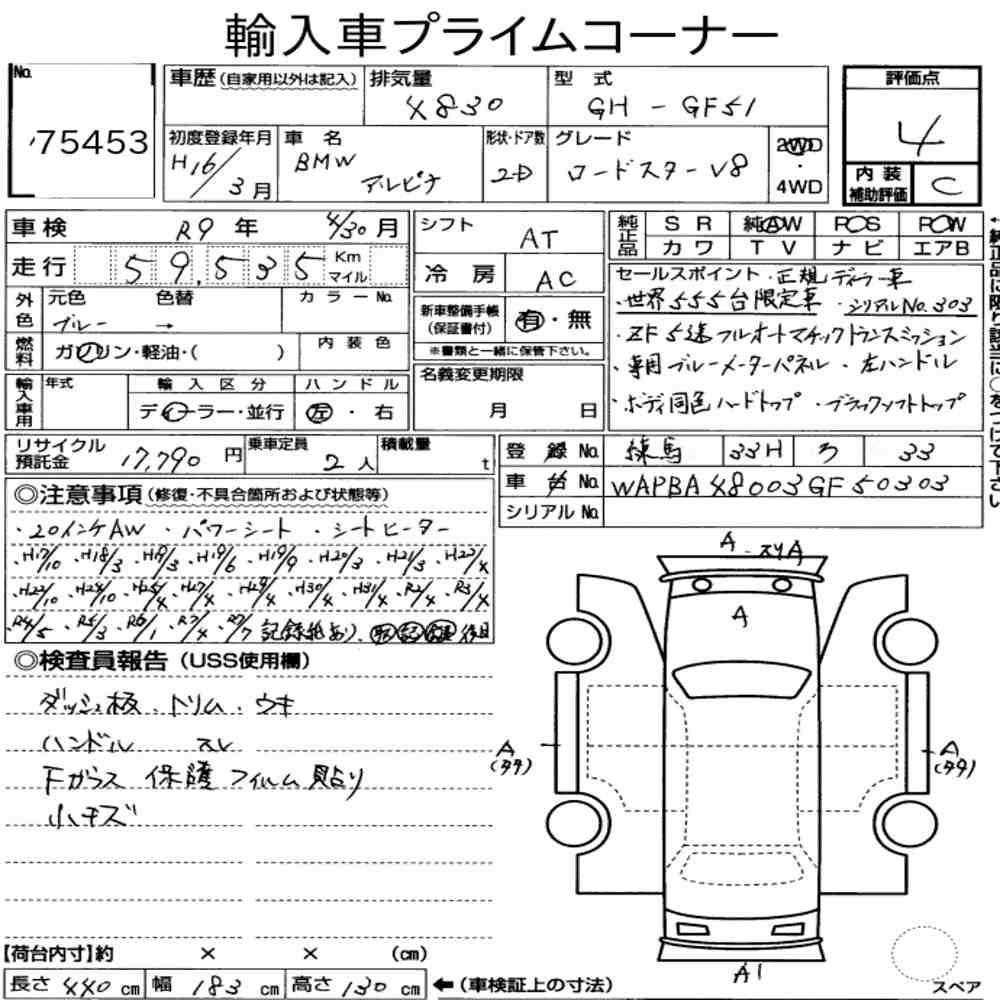 輸入車プライムコーナー
No.
75453
車歴(自家用以外は記入)
排気量
4830
型式
GH - GF51
評価点
4
初度登録年月
H16/3月
車名
BMW
アルピナ
形状・ドア数
2D
グレード
ロードスターV8
2WD
・
4WD
内装
補助評価
C
車検 R9年 4/30月
走行 59,535 Km
マイル
外色
元色
ブルー
色替
→
カラーNo.
燃料
ガソリン・軽油・( )
内装色
輸入車用
年式
輸入区分
ディーラー・並行
ハンドル
左・右
シフト AT
冷房 AC
新車整備手帳
(保証書付)
有・無
※書類と一緒に保管下さい。
名義変更期限
月 日
純正品
SR 純AW PS PW
カワ TV ナビ エアB
セールスポイント・正規ディーラー車
・世界555台限定車 ・シリアルNo.303
・ZF5速フルオートマチックトランスミッション
・専用ブルーメーターパネル ・左ハンドル
・ボディ同色ハードトップ ・ブラックソフトトップ
リサイクル
預託金
17,790円
乗車定員
2人
積載量
t
登録No. 練馬 33H ろ 33
車台No. WAPBA48003GF50303
シリアルNo.
◎注意事項(修復・不具合箇所および状態等)
・20インチAW ・パワーシート ・シートヒーター
・H17/10 ・H18/3 ・H19/3 ・H19/6 ・H19/9 ・H20/3 ・H21/3 ・H22/4
・H23/10 ・H24/10 ・H25/4 ・H27/4 ・H29/4 ・H30/4 ・H31/4 ・R2/4 ・R3/4
・R4/5 ・R5/3 ・R6/1 ・R7/4 ・R7/7 記録簿あり、取 記 後日
◎検査員報告(USS使用欄)
ダッシュ板、トリム、ウキ
ハンドル スレ
Fガラス 保護フィルム貼り
小キズ
A スリA
A
A
(タタ)
A
(タタ)
A1
スペア
【荷台内寸】約 × × (cm)
長さ 440 cm 幅 183 cm 高さ 130 cm ←(車検証上の寸法)